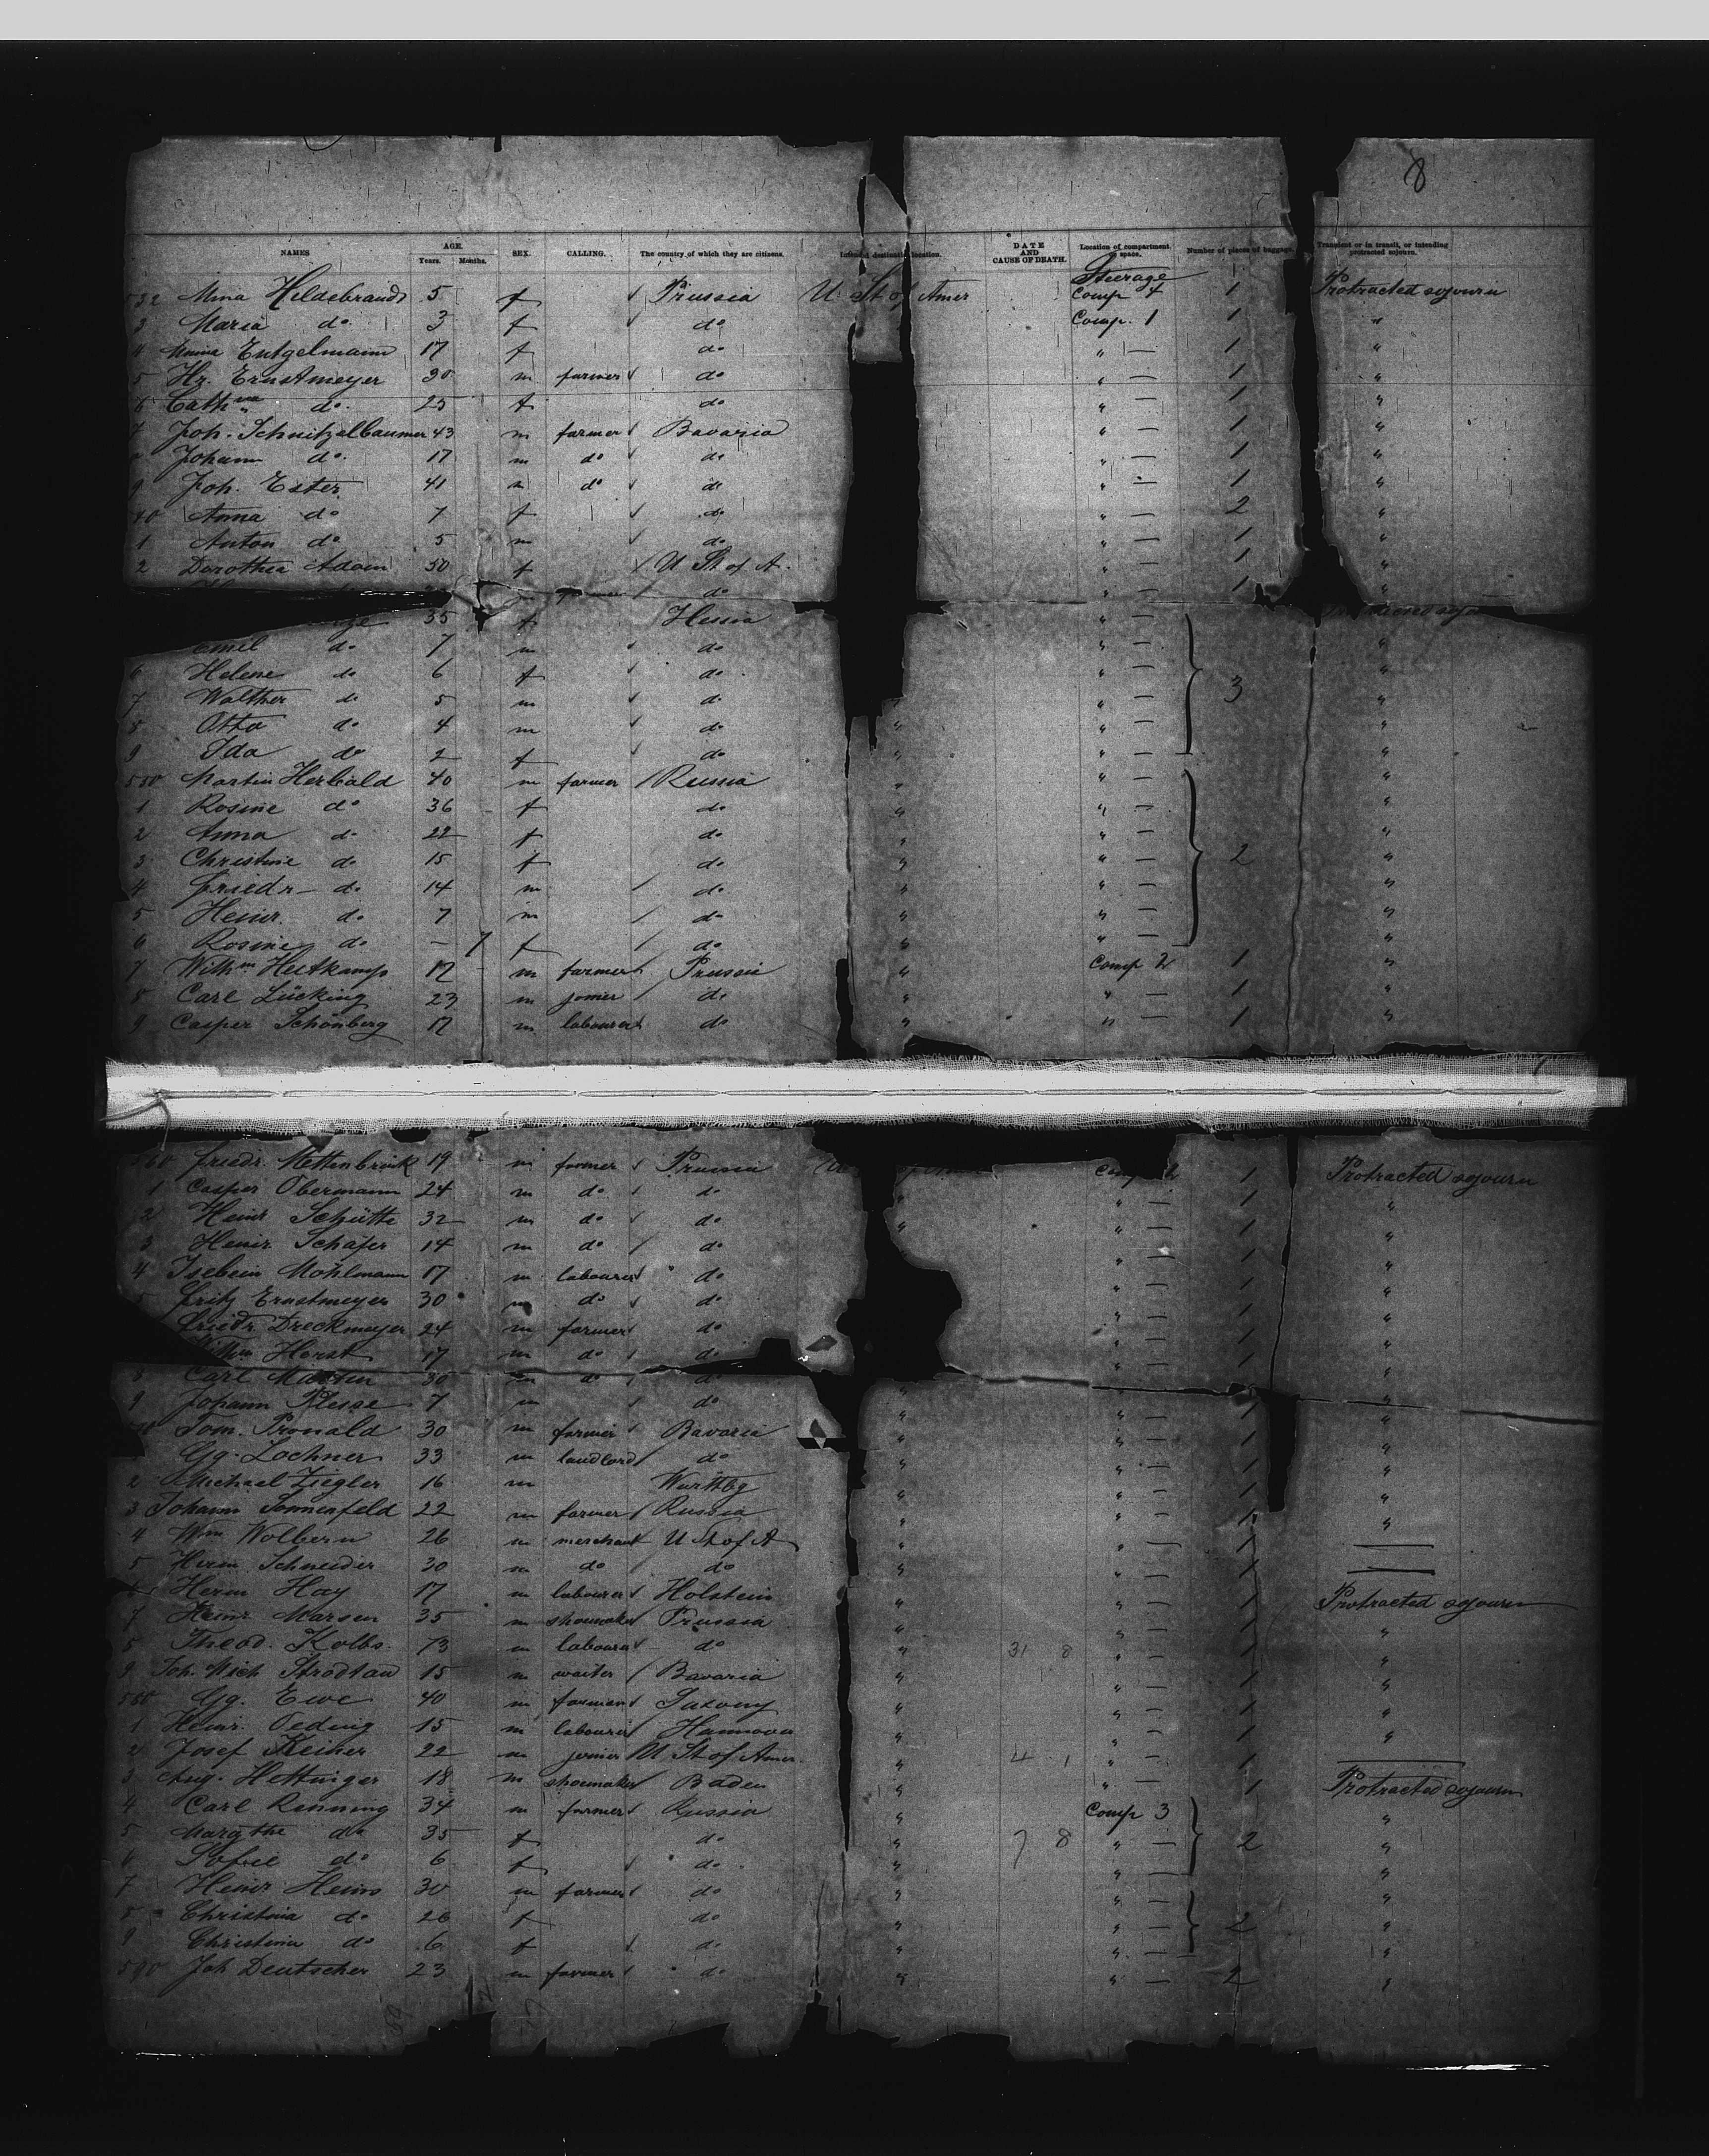 8
NAMES AGE. Years. Months. SEX. CALLING. The country of which they are citizens. Intended destination location. DATE AND CAUSE OF DEATH. Location of compartment or space. Number of pieces of baggage. Transient or in transit, or intending protracted sojourn.
Steerage
532 Mina Hildebrandt 5 f Prussia U. St of Amer Comp 1 Protracted sojourn
3 Maria do. 3 f do Comp. 1 1 "
4 Entgelmann 17 f do " — 1 "
5 Hr. Ernstmeyer 30 m farmer do " — 1 "
6 Cath do. 25 f do " — 1 "
7 Joh. Schnitzelbaumer 43 m farmer Bavaria " — 1 "
Johann do. 17 m do do " — 1 "
9 Joh. Ester 41 m do do " — 1 "
40 Anna do 7 f do " — 2 "
1 Anton do 5 m do " — 1 "
2 Dorothea Adam 50 f U St of A. " — 1 "
do " — 1
35 f " —
Emil do 7 m do " — "
6 Helene do 6 f do " — 3 "
7 Walther do 5 m do " — "
8 Otto do 4 m do " " — "
9 Ida do 2 f do " " — "
550 Martin 40 m farmer Russia " " — "
1 Rosine do 36 f do " " — "
2 Anna do 22 f do " " — "
3 Christine do 15 f do " " — 2 "
4 Friedr do. 14 m do " " — "
5 Heinr. do. 7 m do " " — "
6 Rosine do. — 7 f do " " — "
7 Wilhm Heitkamp 17 m farmer Prussia " Comp 2 1 "
8 Carl Lücking 23 m joiner do " " — 1 "
9 Casper Schönberg 17 m labourer do " " — 1 "
560 Friedr. Mettenbrink 19 m farmer Prussia 1 Protracted sojourn
1 Casper Obermann 24 m do do " " — 1 "
2 Heinr Schütte 32 m do do " " — 1 "
3 Heinr. Schäfer 14 m do do " — 1 "
4 Möhlmann 17 m labourer do " — 1 "
5 Fritz Ernstmeyer 30 m do do " — 1 "
Friedr. Dreckmeyer 24 m farmer do " — 1 "
Horst 17 m do do " — 1 "
8 Carl Martin 30 m do do " " — 1 "
9 Johann Klesse 7 m do " " — 1 "
Tom. Pronald 30 m farmer Bavaria " " — 1 "
Gg. Lochner 33 m landlord do " " — 1 "
2 Michael Ziegler 16 m Württbg " " — 1 "
3 Johann Sonnenfeld 22 m farmer Russia " " — 1 "
4 Wm Wolbern 26 m merchant U St of A " " — 1 —
5 Herm Schneider 30 m do do " " — 1 —
Herm Hoy 17 m labourer Holstein " " — 1 Protracted sojourn
7 Heinr Marsen 35 m shoemaker Prussia " " — 1 "
8 Theod. Kolbs. 13 m labourer do " 31 8 " — 1 "
9 Joh. Mich 15 m waiter Bavaria " " — 1 "
580 Gg. Ewe 40 m Saxony " " — 1 "
1 Heinr. Oeding 15 m labourer Hannover " " — 1 "
2 Josef Keiner 22 m joiner U St of Amer. " 4 1 " — 1 —
3 Aug. Hettinger 18 m shoemaker Baden " " — 1 Protracted sojourn
4 Carl Renning 34 m farmer Russia " Comp 3 "
5 Margthe do 35 f do " 7 8 " — 2 "
6 Sofie do. 6 f do " " — "
7 Heinr. Heims 30 m farmer do " " — "
8 Christina do 26 f do " " — 2 "
9 Christina do 6 f do " " — "
590 Joh Deutscher 23 m farmer do " " — 2 "